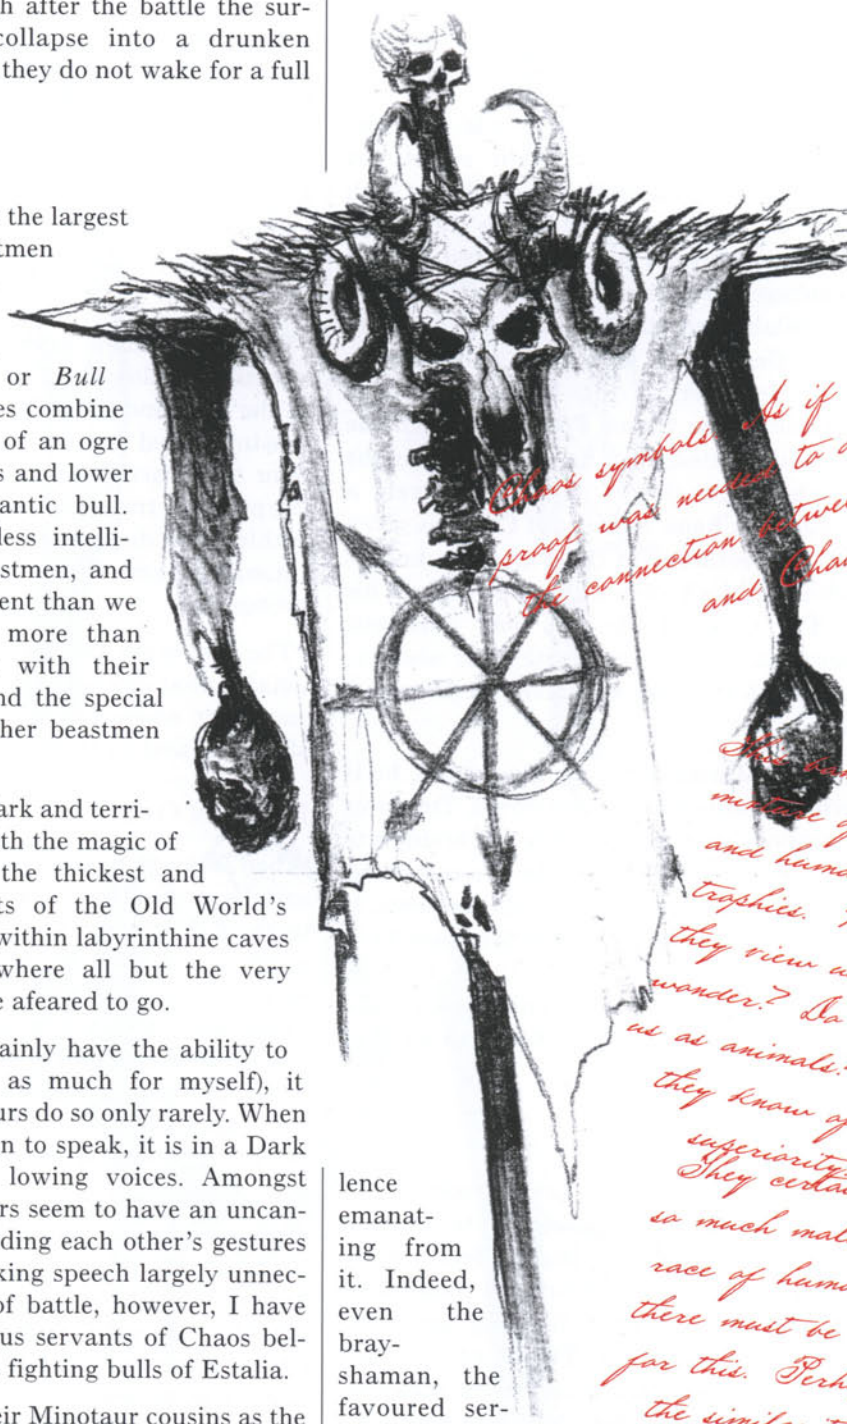 h after the battle the sur-
collapse into a drunken
they do not wake for a full
the largest
tmen
or Bull
es combine
of an ogre
s and lower
antic bull.
less intelli-
stmen, and
ent than we
more than
with their
nd the special
her beastmen
ark and terri-
th the magic of
the thickest and
ts of the Old World's
within labyrinthine caves
where all but the very
e afeared to go.
ainly have the ability to
as much for myself), it
urs do so only rarely. When
n to speak, it is in a Dark
lowing voices. Amongst
rs seem to have an uncan-
ding each other's gestures
king speech largely unnec-
of battle, however, I have
us servants of Chaos bel-
fighting bulls of Estalia.
eir Minotaur cousins as the
lence
emanat-
ing from
it. Indeed,
even the
bray-
shaman, the
favoured ser-
Chaos symbols. As if
proof was needed to
the connection betwee
and Chao
This
mixture
and huma
trophies.
they view
wonder? Do
us as animals?
they know of
superiority?
They certai
so much mal
race of huma
there must be
for this. Perh
the simil